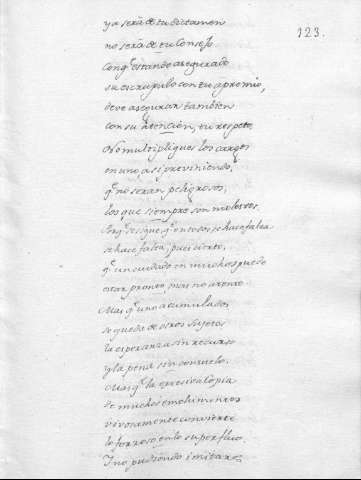 123.
ya será de tu dictamen
no será de tu Consejo
Conq.e estando asegurado
su escrupulo con tu apremio,
deve asegurar tambien
con su atencion, tu respeto.
No multipliques los cargos
en uno, asi previniendo,
q.e no seran peligrosos,
los que siempre son molestos.
Porq.e sé que, q.n en todos se hace falta
se hace falta, pues cierto,
q.e un cuidado en muchos puede
estar pronto, mas no atento.
Mas q.e uno acumulados
se queda de otros sujetos
la esperanza sin recurso
y la pena sin consuelo.
Mas q.e la excesiva Copia
de muchos emolumentos
viciosamente convierte
lo forzoso en lo superfluo.
Y no pudiendo imitaros